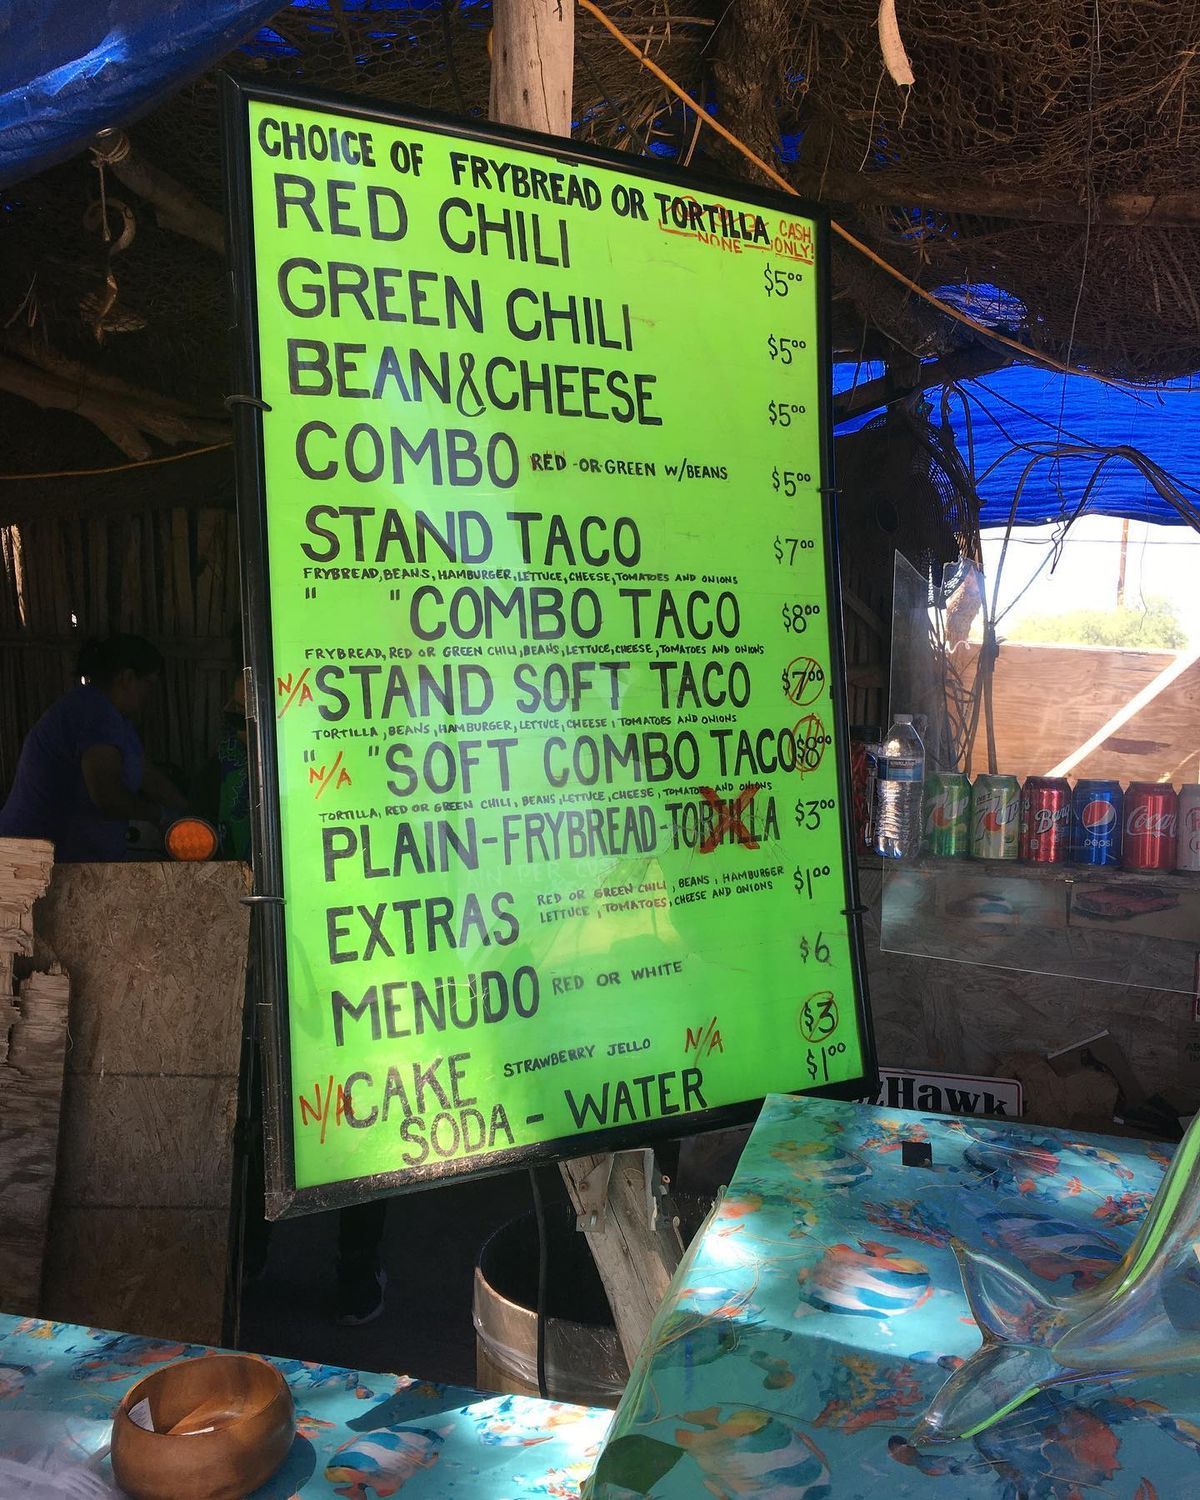 CHOICE OF FRYBREAD OR TORTILLA
NONE
CASH ONLY!
RED CHILI $5.00
GREEN CHILI $5.00
BEAN&CHEESE $5.00
COMBO RED -OR- GREEN W/BEANS $5.00
STAND TACO $7.00
FRYBREAD, BEANS, HAMBURGER, LETTUCE, CHEESE, TOMATOES AND ONIONS
" " COMBO TACO $8.00
FRYBREAD, RED OR GREEN CHILI, BEANS, LETTUCE, CHEESE, TOMATOES AND ONIONS
N/A STAND SOFT TACO $7.00
TORTILLA, BEANS, HAMBURGER, LETTUCE, CHEESE, TOMATOES AND ONIONS
" N/A " SOFT COMBO TACO $8.00
TORTILLA, RED OR GREEN CHILI, BEANS, LETTUCE, CHEESE, TOMATOES AND ONIONS
PLAIN-FRYBREAD-TORTILLA $3.00
EXTRAS RED OR GREEN CHILI, BEANS, HAMBURGER $1.00
LETTUCE, TOMATOES, CHEESE AND ONIONS
MENUDO RED OR WHITE $6
N/A CAKE STRAWBERRY JELLO N/A $3
SODA - WATER $1.00
7UP
Barq's
pepsi
Coca-Cola
zHawk